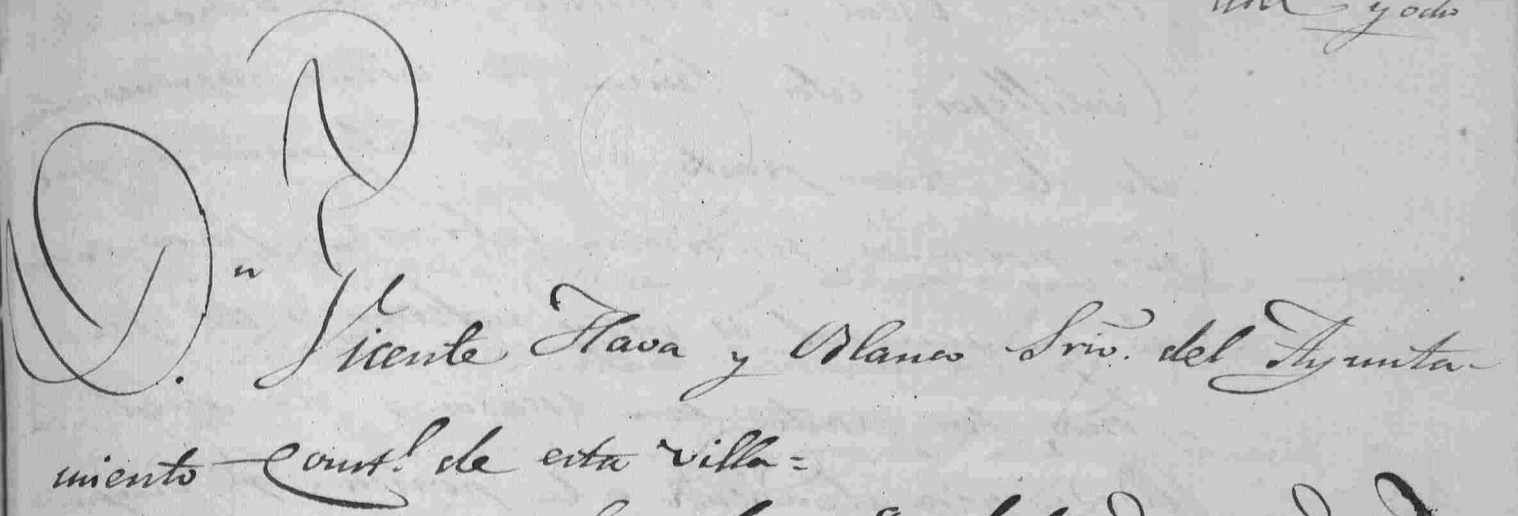 y ocho
Dn. Vicente Nava y Blanco Srio. del Ayunta-
miento Constl. de esta villa=